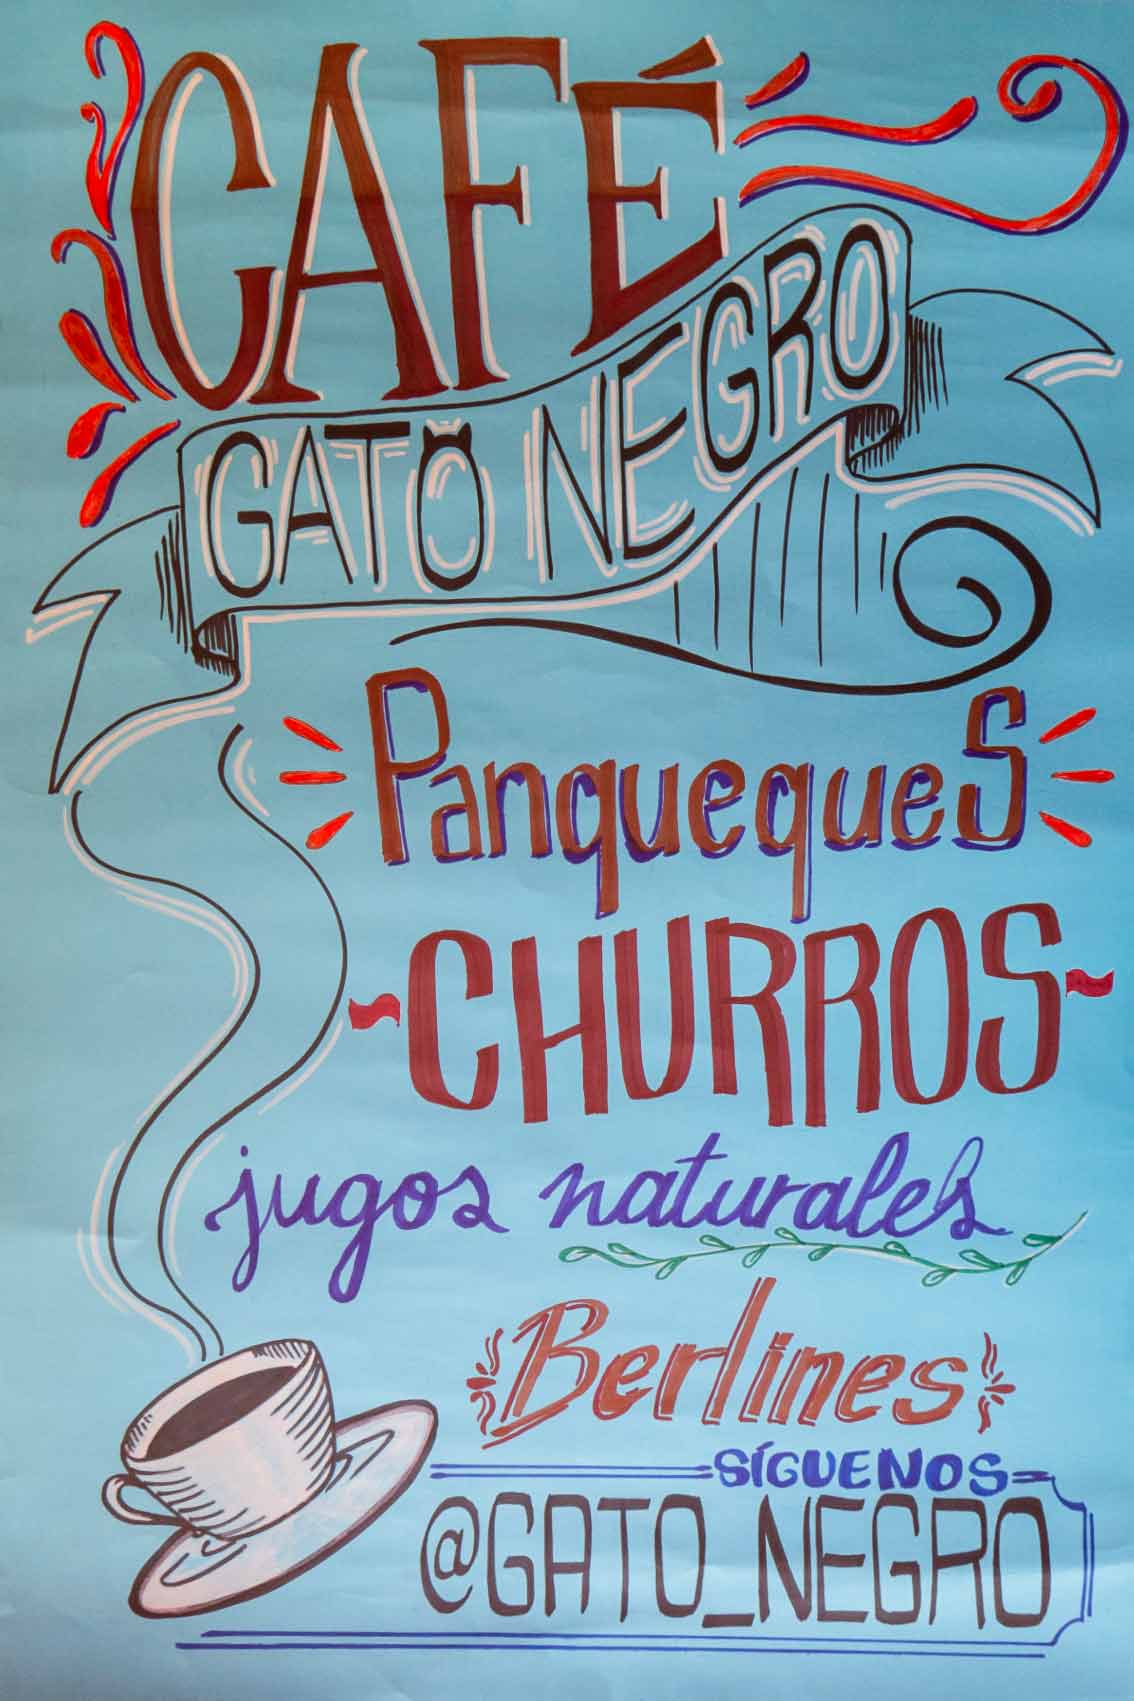 CAFÉ
GATO NEGRO
PanquequeS
~CHURROS~
jugos naturales
Berlines
SÍGUENOS
@GATO_NEGRO